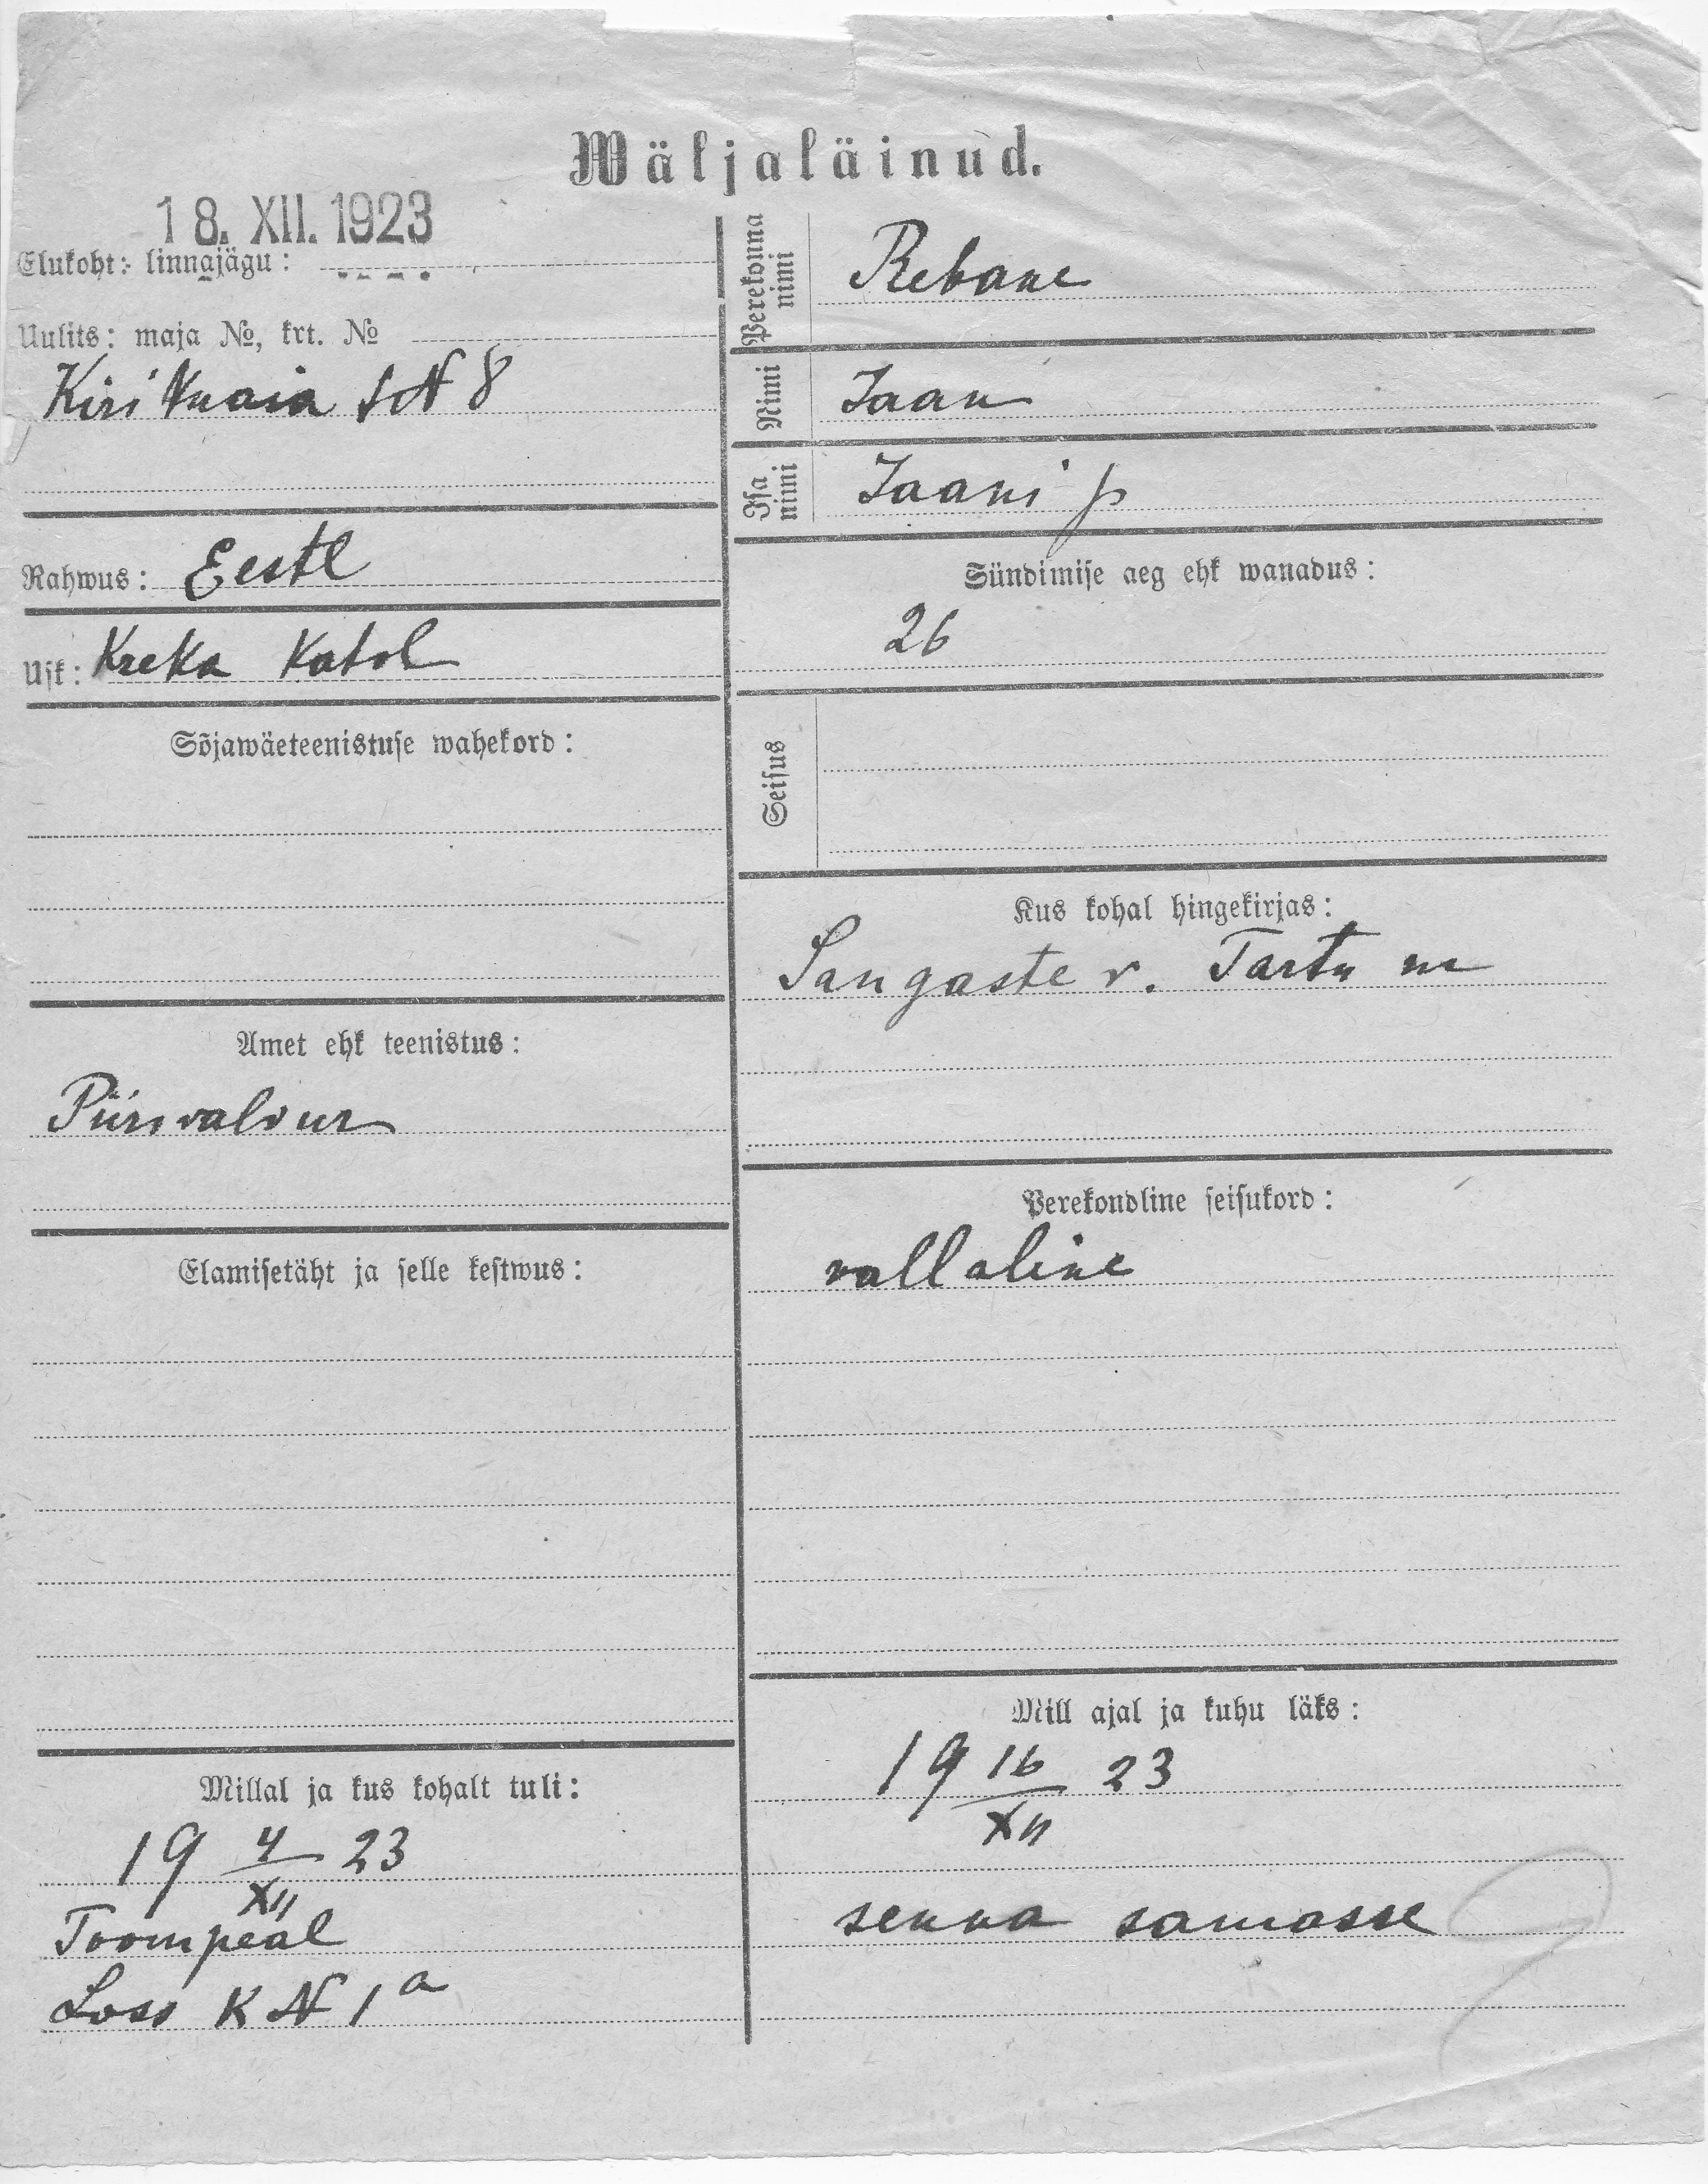 Wäljaläinud.
18. XII. 1923
Elukoht: linnajägu:
Uulits: maja №, krt. №
Kirikuaia № 8
Rahwus: Eestl
Usk: Kreka Katol
Sõjawäeteenistuse wahekord:
Amet ehk teenistus:
Piirivalvur
Elamisetäht ja selle kestwus:
Millal ja kus kohalt tuli:
19 4/XII 23
Toompeal
Loss K № 1 a
Perekonna nimi
Rebane
Nimi
Jaan
Isa nimi
Jaani p
Sündimise aeg ehk wanadus:
26
Seisus
Kus kohal hingekirjas:
Sangaste v. Tartu m
Perekondline seisukord:
vallaline
Mill ajal ja kuhu läks:
19 16/XII 23
senna samasse